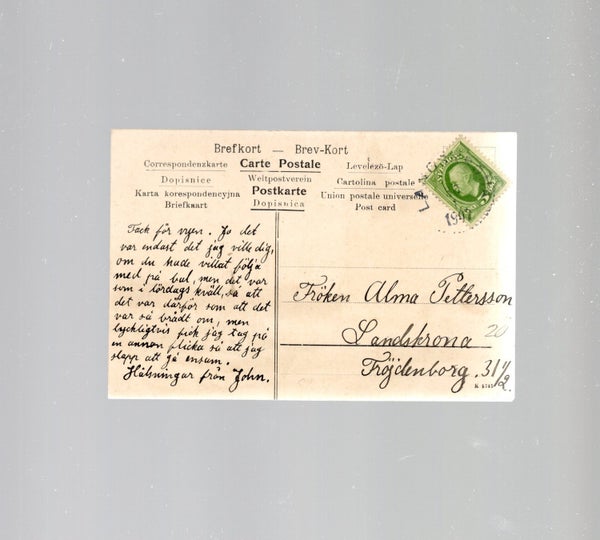 Brefkort — Brev-Kort
Correspondenzkarte Carte Postale Levelezö-Lap
Dopisnice Weltpostverein Cartolina postale
Karta korespondencyjna Postkarte Union postale universelle
Briefkaart Dopisnica Post card
Tack för vyen. Jo det
var endast det jag ville dig,
om du hade villat följa
med på bal, men det var
som i lördags kväll, så att
det var därför som att det
var så brådt om, men
lyckligtvis fick jag tag på
en annan flicka så att jag
slapp att gå ensam.
Hälsningar från John.
Fröken Alma Pettersson
Landskrona 20
Fröjdenborg. 31 1/2.